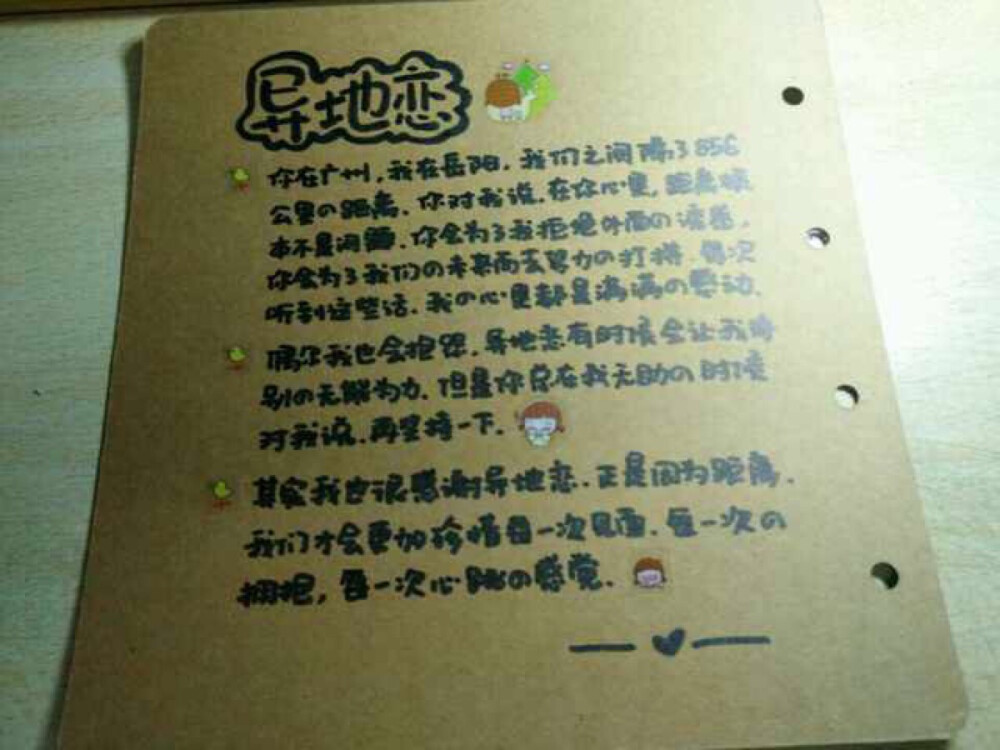 异地恋
你在广州,我在岳阳.我们之间隔了856
公里の距离.你对我说.在你心里,距离根
本不是问题.你会为了我拒绝外面の诱惑.
你会为了我们の未来而去努力の打拼.每次
听到这些话.我の心里都是满满の感动.
偶尔我也会抱怨.异地恋有时候会让我特
别の无能为力.但是你总在我无助の时候
对我说.再坚持一下.
其实我也很感谢异地恋.正是因为距离.
我们才会更加珍惜每一次见面.每一次の
拥抱,每一次心跳の感觉.